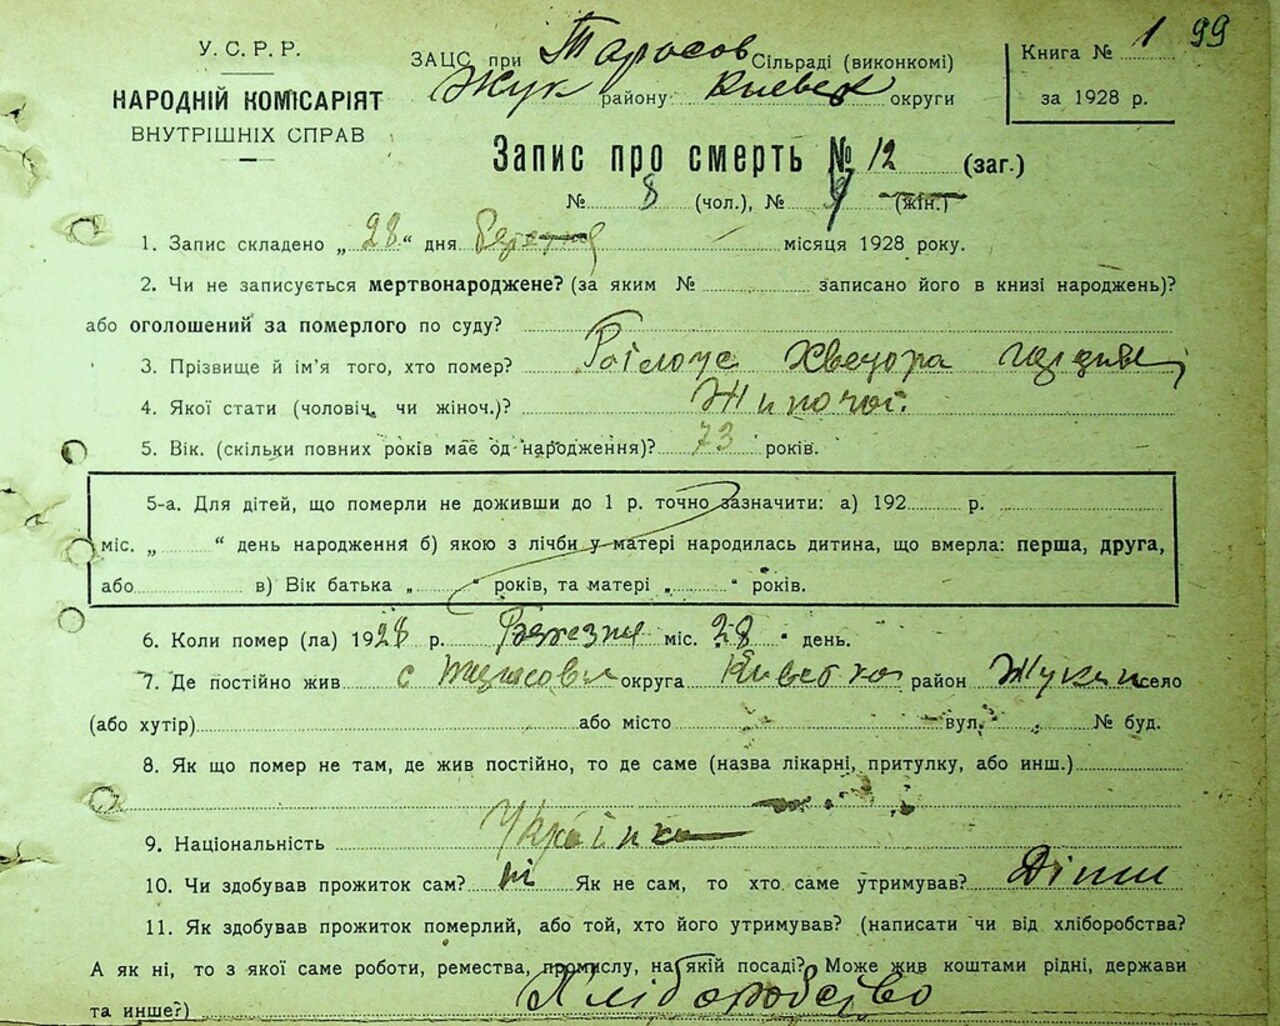 1 99
У. С. Р. Р.
НАРОДНІЙ КОМІСАРІЯТ
ВНУТРІШНІХ СПРАВ
ЗАЦС при Тарасов Сільраді (виконкомі)
Жук району Киевск округи
Книга №
за 1928 р.
Запис про смерть № 12 (заг.)
№ 8 (чол.), № (жін.)
1. Запис складено „ 28 “ дня місяця 1928 року.
2. Чи не записується мертвонароджене? (за яким № записано його в книзі народжень)?
або оголошений за померлого по суду?
3. Прізвище й ім'я того, хто помер? Хведора
4. Якої статі (чоловіч. чи жіноч.)?
5. Вік. (скільки повних років має од народження)? 73 років.
5-а. Для дітей, що померли не доживши до 1 р. точно зазначити: а) 192 р.
міс. „ “ день народження б) якою з лічби у матері народилась дитина, що вмерла: перша, друга,
або в) Вік батька „ “ років, та матері „ “ років.
6. Коли помер (ла) 1928 р. Березня міс. 28 день.
7. Де постійно жив с округа район село
(або хутір) або місто вул. № буд.
8. Як що помер не там, де жив постійно, то де саме (назва лікарні, притулку, або инш.)
9. Національність Українка
10. Чи здобував прожиток сам? ні Як не сам, то хто саме утримував? Діти
11. Як здобував прожиток померлий, або той, хто його утримував? (написати чи від хліборобства?
А як ні, то з якої саме роботи, ремества, промислу, на якій посаді? Може жив коштами рідні, держави
та инше?) Хліборобство